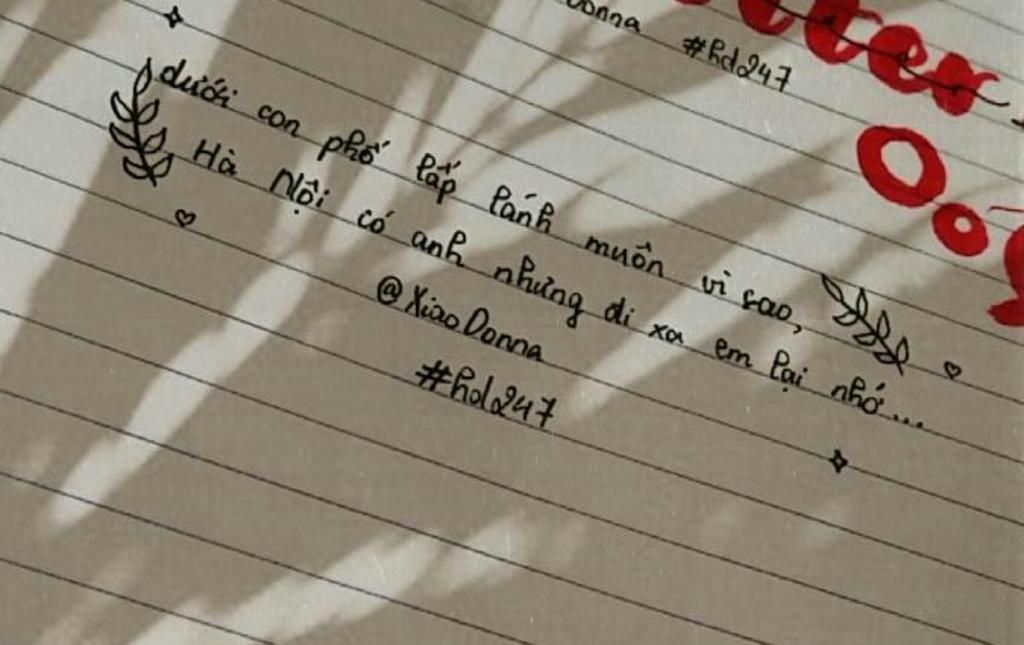 #hd247
dưới con phố lấp lánh muôn vì sao,
Hà Nội có anh nhưng đi xa em lại nhớ...
@XiaoDonna
#hd247